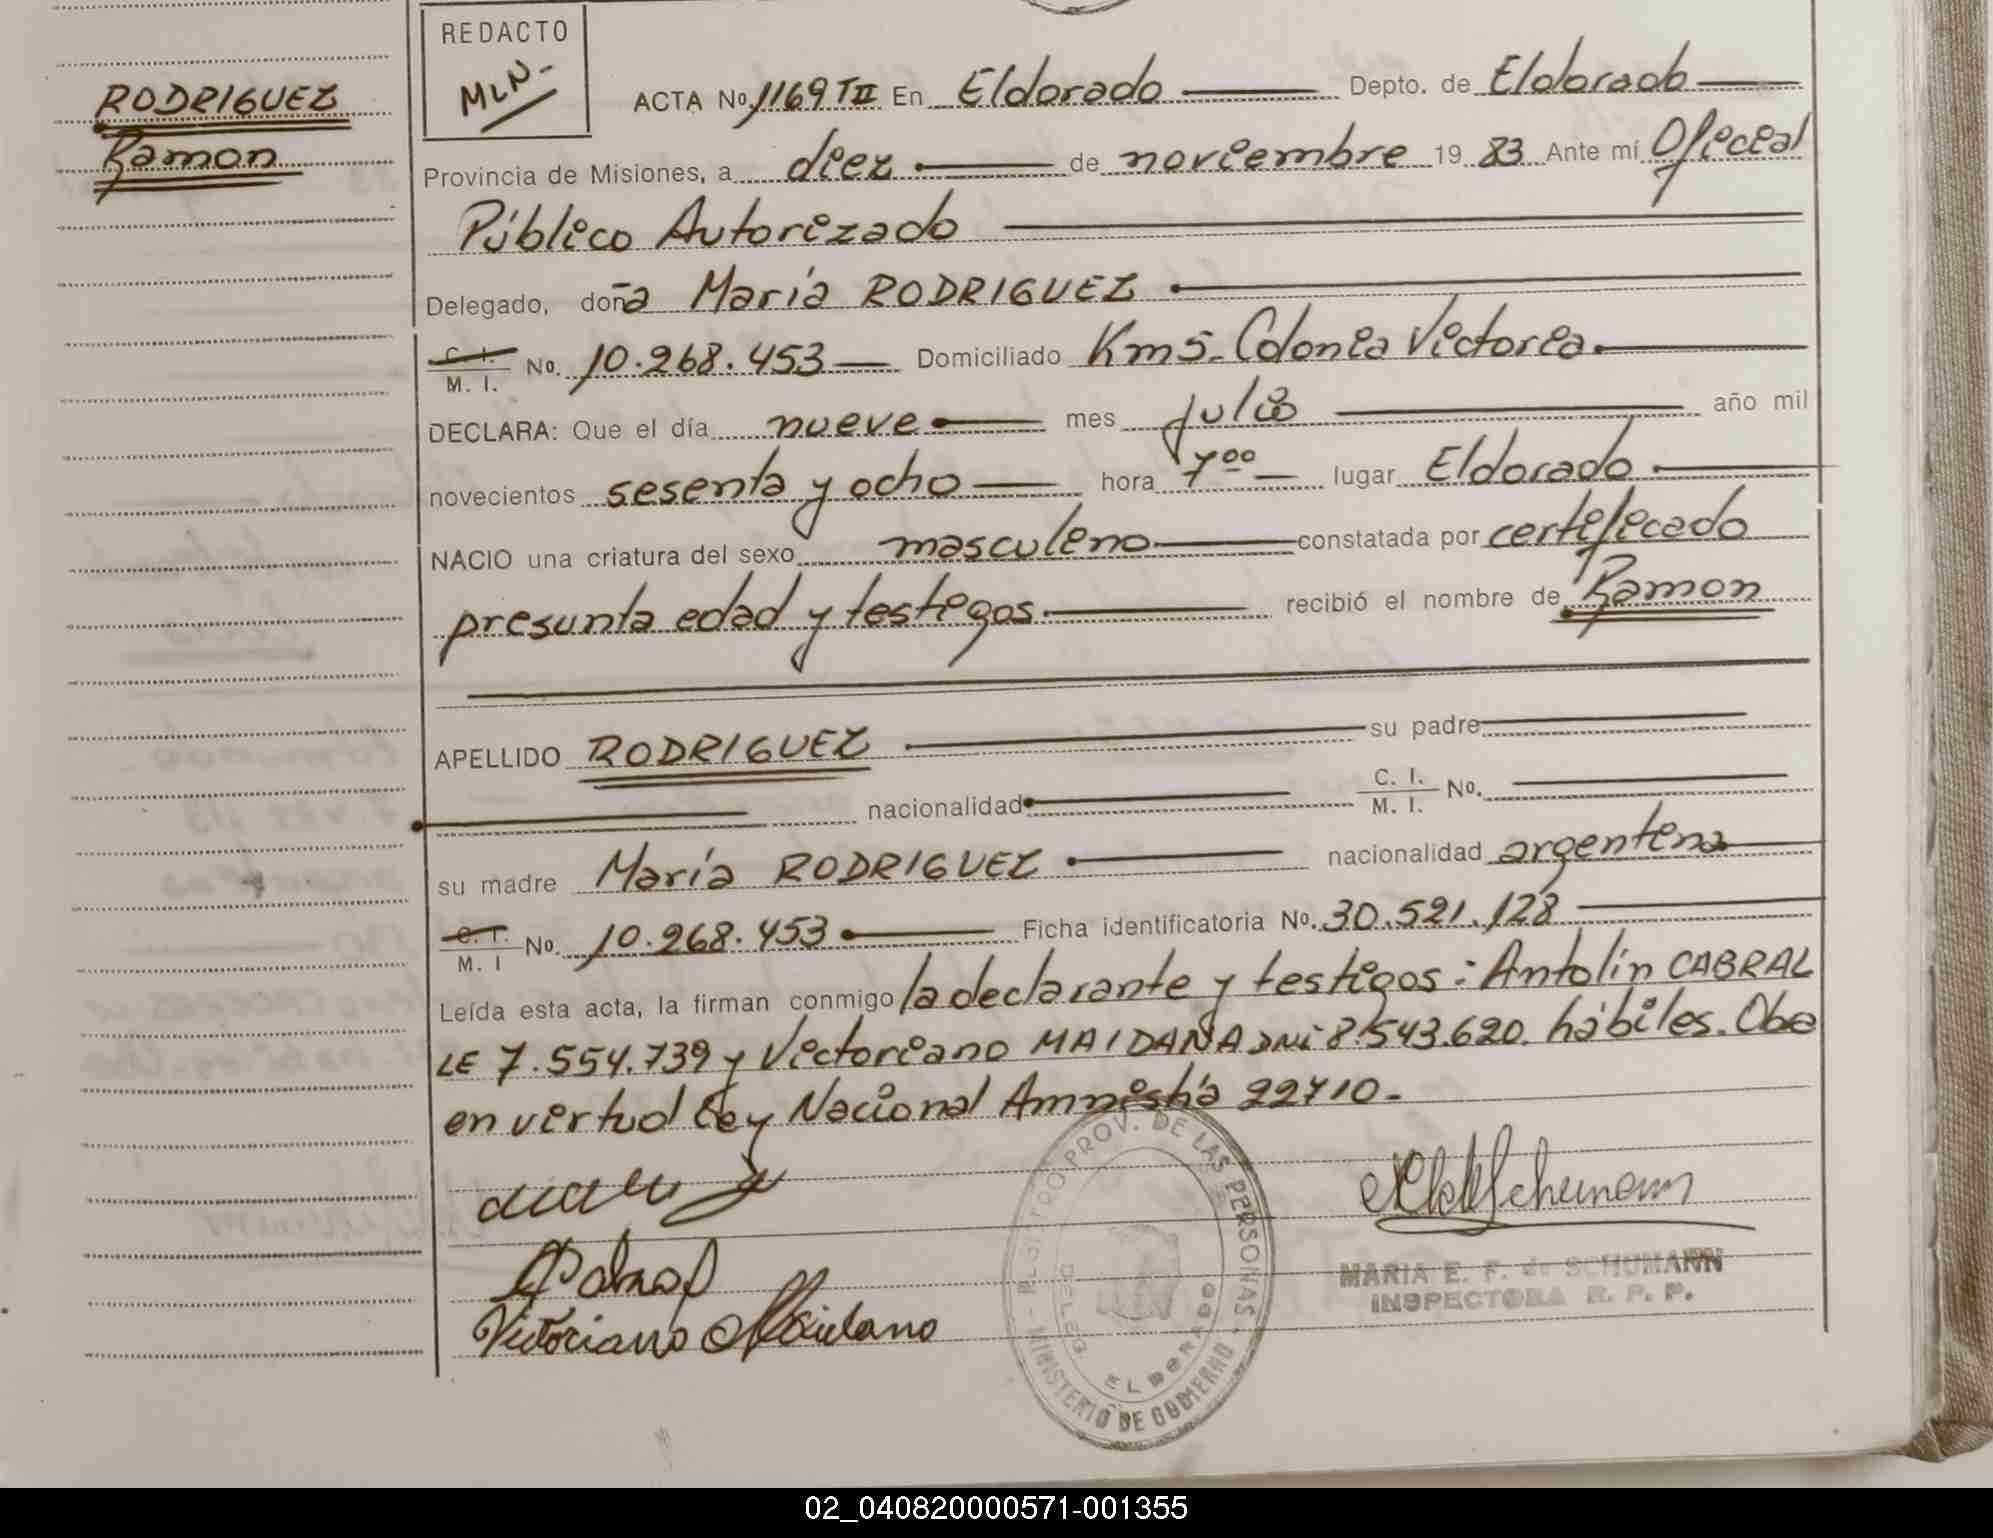 RODRIGUEZ
Ramon
REDACTO
MLN-
ACTA No. 1169 TII En Eldorado Depto. de Eldorado
Provincia de Misiones, a diez de noviembre 19 83 Ante mí Oficial
Público Autorizado
Delegado, doña María RODRIGUEZ
C. I. / M. I. No. 10.268.453 Domiciliado Km5- Colonia Victoria.
DECLARA: Que el día nueve mes julio año mil
novecientos sesenta y ocho hora 7⁰⁰ lugar Eldorado
NACIO una criatura del sexo masculino constatada por certificado
presunta edad y testigos recibió el nombre de Ramon
APELLIDO RODRIGUEZ su padre
nacionalidad C. I. / M. I. No.
su madre María RODRIGUEZ nacionalidad argentina
C. I. / M. I No. 10.268.453 Ficha identificatoria No. 30.521.128
Leída esta acta, la firman conmigo la declarante y testigos: Antolín CABRAL
LE 7.554.739 y Victoriano MAIDANA DNI 8.543.620. hábiles. Obo
en virtud Ley Nacional Amnistía 22710.-
Victoriano Maidano
MARIA E. F. de SCHUMANN
INSPECTORA R. P. P.
REGISTRO PROV. DE LAS PERSONAS - MINISTERIO DE GOBIERNO -
DELEG. ELDORADO
02_040820000571-001355